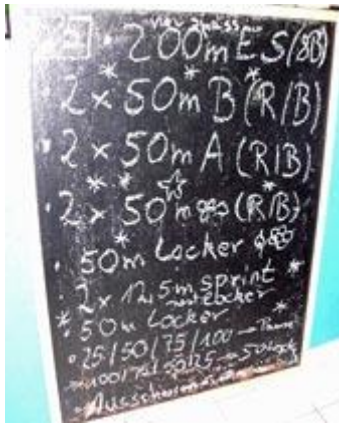 200m E S (8B)
2 x 50m B (R/B)
2 x 50m A (R/B)
2 x 50m (R/B)
50m locker
2 x 12,5m sprint
locker
50m locker
25/50/75/100
100/75/50/25
Ausschwimmen